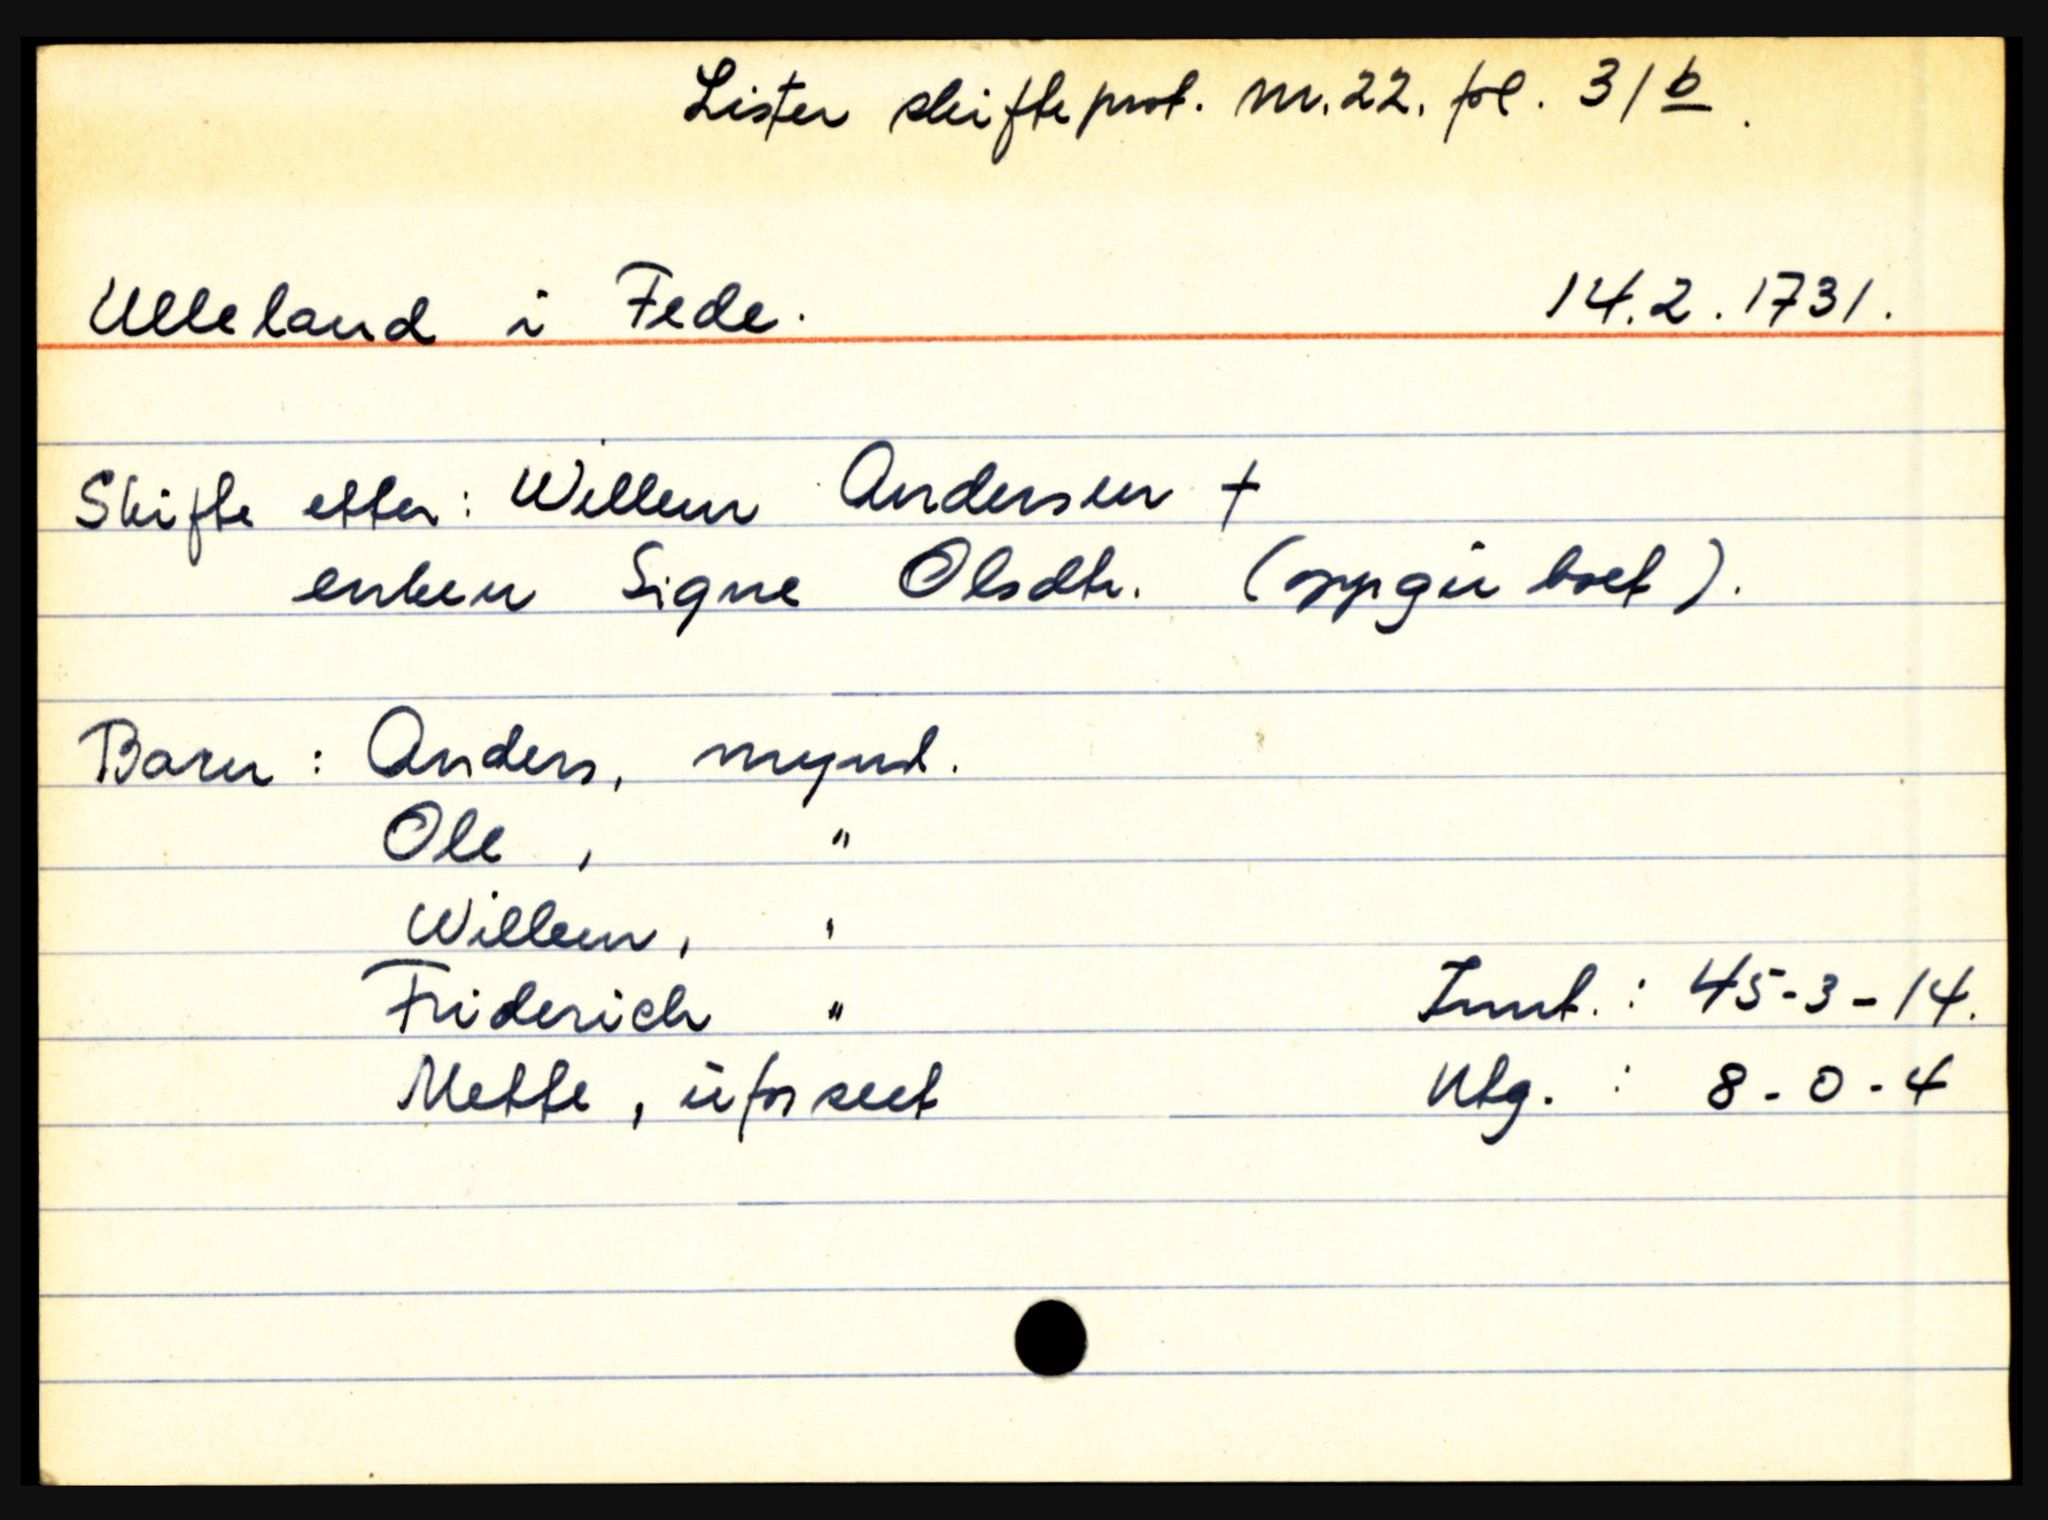 Lister skifteprot. nr. 22. fol. 31 b.
Ulleland i Fede. 14.2.1731.
Skifte etter: Willem Andersen +
enken Signe Olsdtr. (oppgir boet).
Barn: Anders, mynd.
Ole, "
Willem, '
Friderich " Innt.: 45-3-14.
Mette, uforseet Utg. : 8-0-4